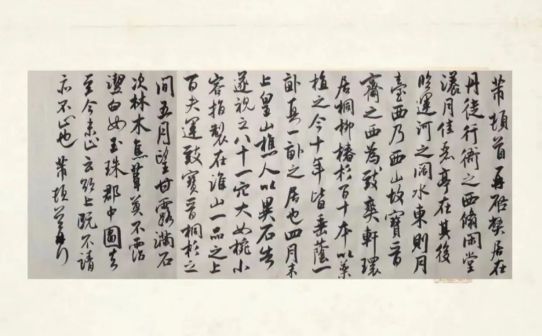 芾頓首再啟弊居在
丹徒行衙之西翛閒堂
漾月佳麗亭在其後
臨運河之闊水東則月
臺西乃西山故寶晉
齋之西為致爽軒環
居桐柳椿杉百十本以藥
植之今十年皆垂蔭一
畝真一畝之居也四月末
上皇山樵人以異石告
遂視之八十一穴大如椀小
容指製在淮山一品之上
百夫運致寶晉桐杉之
間五月望甘露滿石
次林木焦葦莫不霑
潔白如玉珠郡中圖去
至今未止云欲上既不請
亦不止也芾頓首